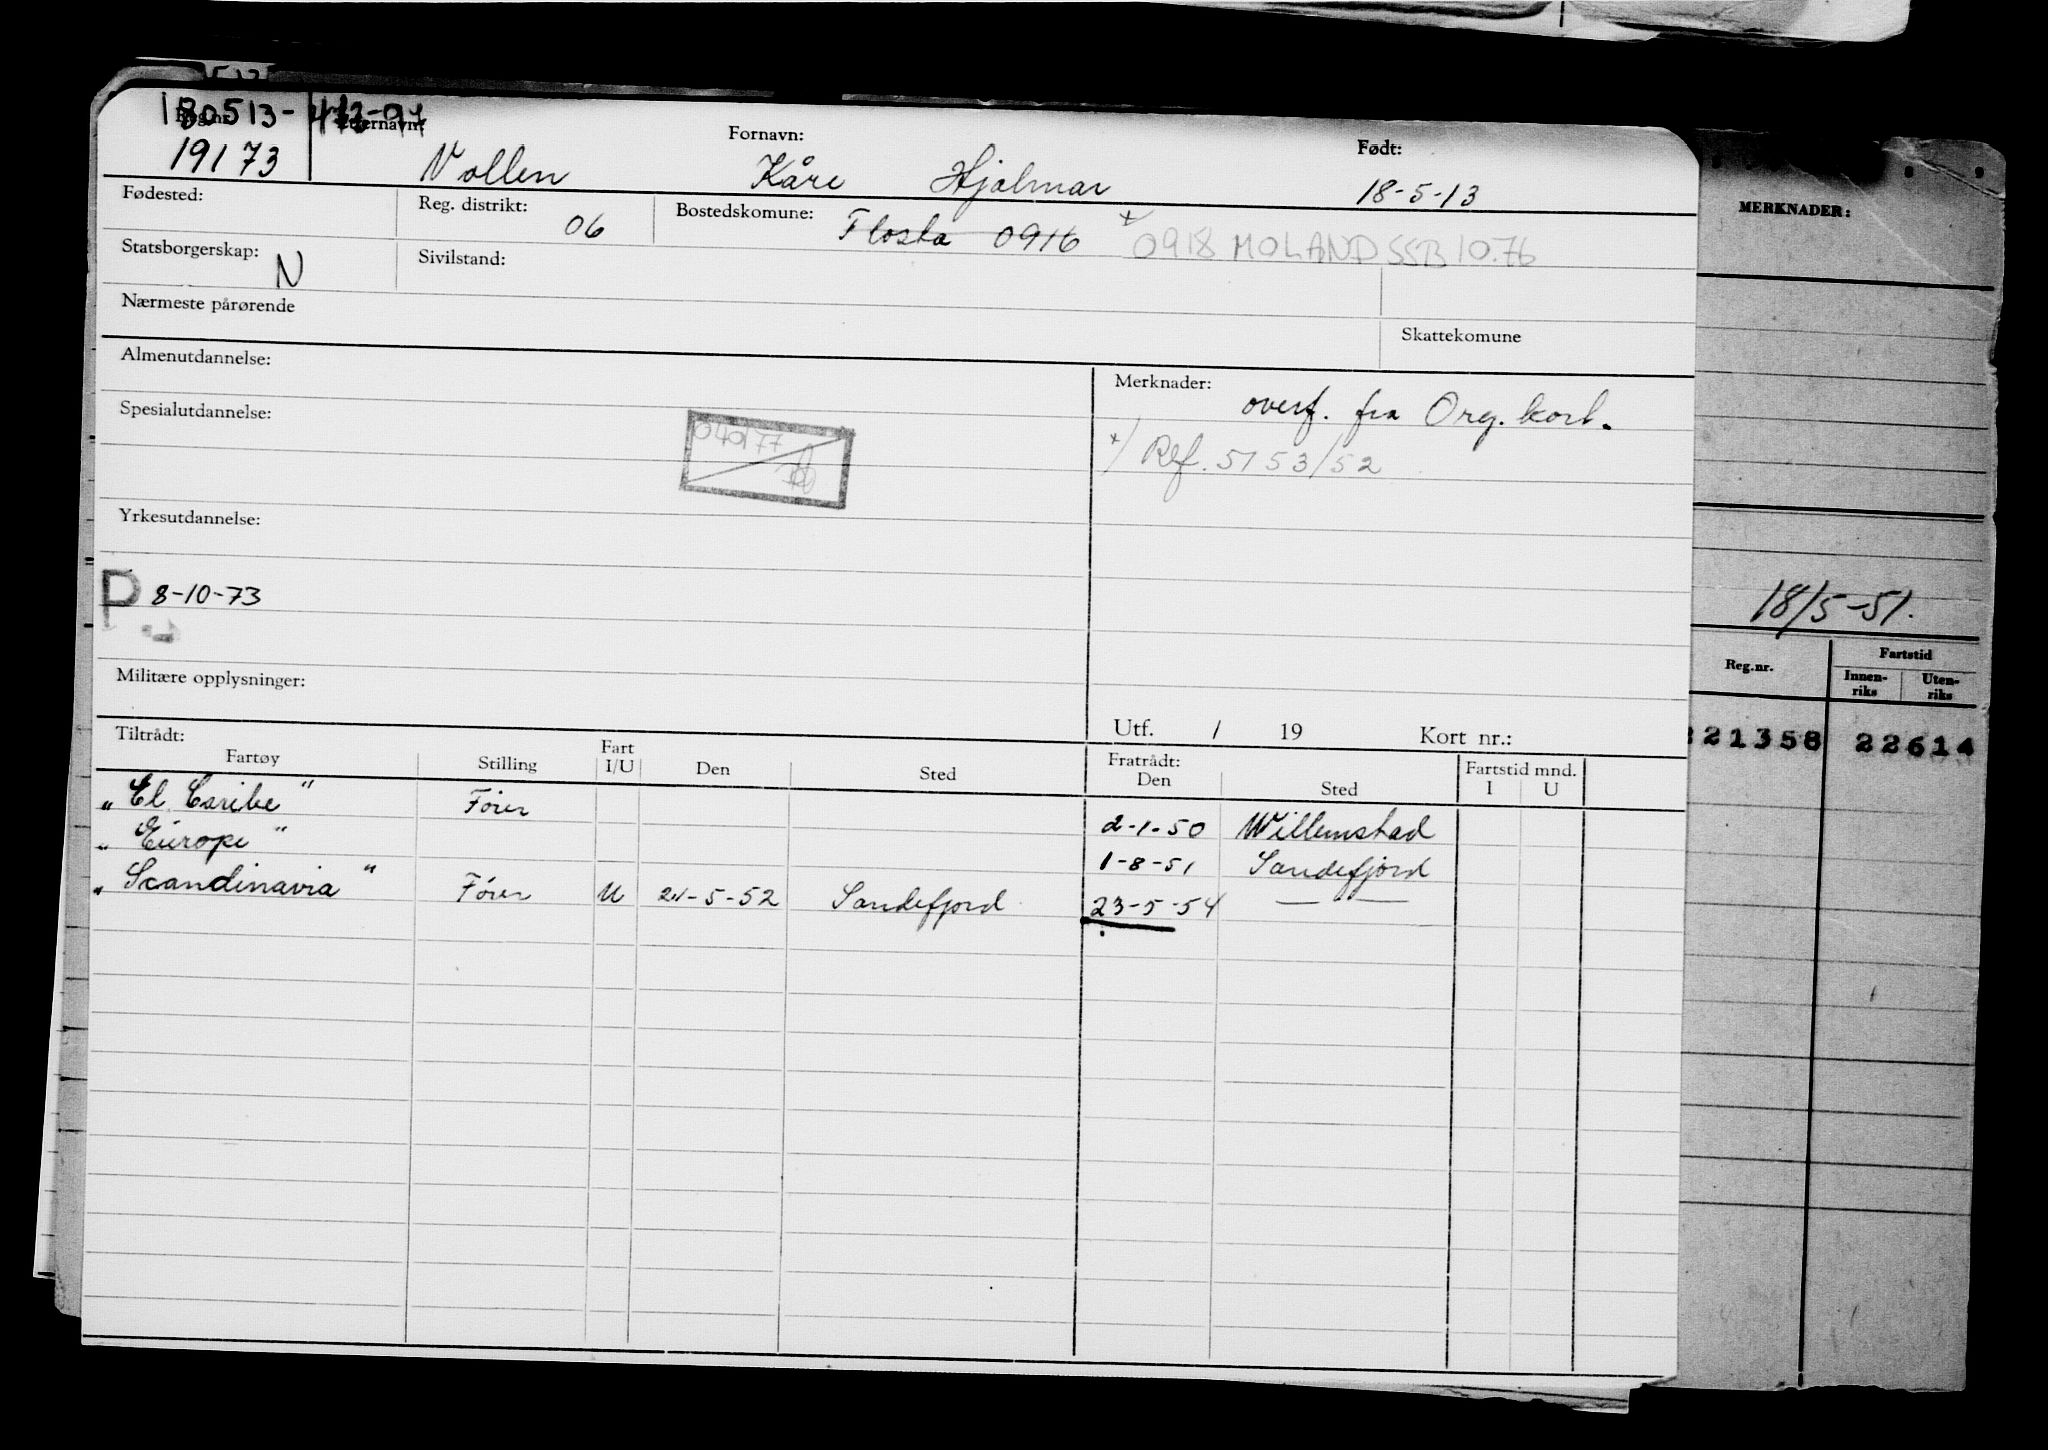 19173
Etternavn: Fornavn: Født:
Vollen Kåre Hjalmar 18-5-13
Fødested: Reg. distrikt: 06 Bostedskomune: Flosta 0916 x 0918 MOLAND SSB 10.76
Statsborgerskap: N Sivilstand:
Nærmeste pårørende Skattekomune
Almenutdannelse: Merknader: overf. fra Org. kort.
Spesialutdannelse: x/ Ref. 5153/52
Yrkesutdannelse:
P 8-10-73
Militære opplysninger:
Utf. / 19 Kort nr.:
Tiltrådt: Fratrådt: Fartstid mnd.
Fartøy Stilling Fart I/U Den Sted Den Sted I U
"El Caribe" Fører 2-1-50 Willemstad
"Europe" 1-8-51 Sandefjord
"Scandinavia" Fører U 21-5-52 Sandefjord 23-5-54 — " —
MERKNADER:
18/5-51.
Reg.nr. Fartstid
Innen-riks Uten-riks
21358 22614